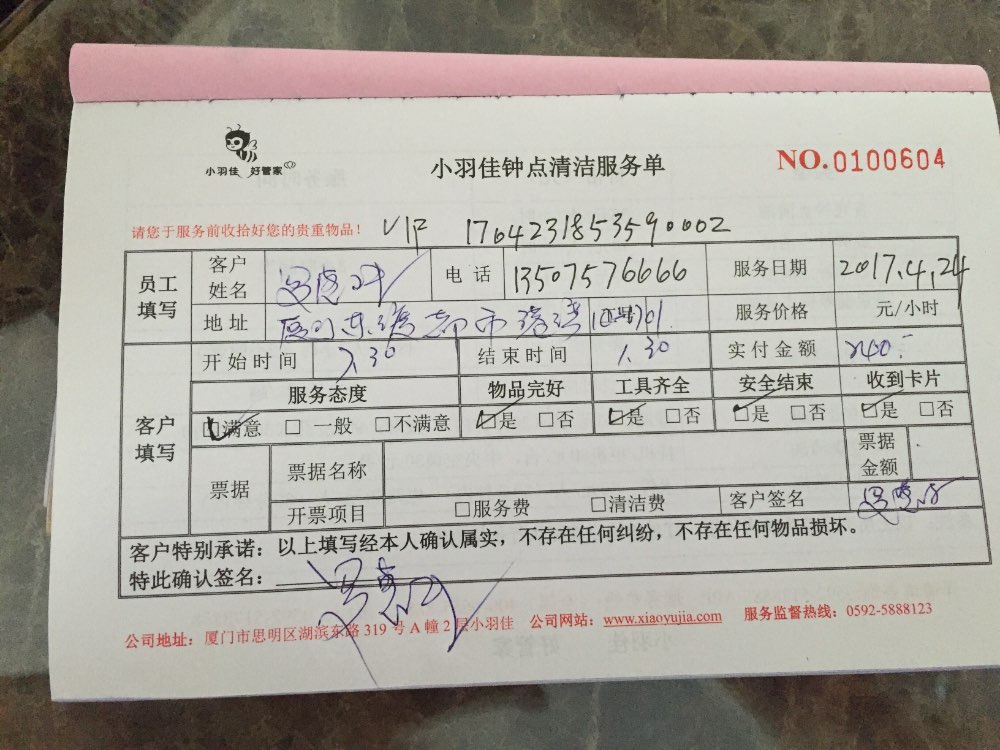 小羽佳 好管家
小羽佳钟点清洁服务单
NO.0100604
请您于服务前收拾好您的贵重物品！ VIP 1764231853590002
员工填写 客户姓名 电话 13507576666 服务日期 2017.4.24
地址 服务价格 元/小时
客户填写 开始时间 结束时间 1.30 实付金额 240.-
服务态度 物品完好 工具齐全 安全结束 收到卡片
☑满意 □ 一般 □不满意 ☑是 □否 ☑是 □否 ☑是 □否 ☑是 □否
票据 票据名称 票据金额
开票项目 □服务费 □清洁费 客户签名
客户特别承诺：以上填写经本人确认属实，不存在任何纠纷，不存在任何物品损坏。
特此确认签名：
公司地址：厦门市思明区湖滨东路 319 号 A 幢 2 层小羽佳 公司网站：www.xiaoyujia.com 服务监督热线：0592-5888123